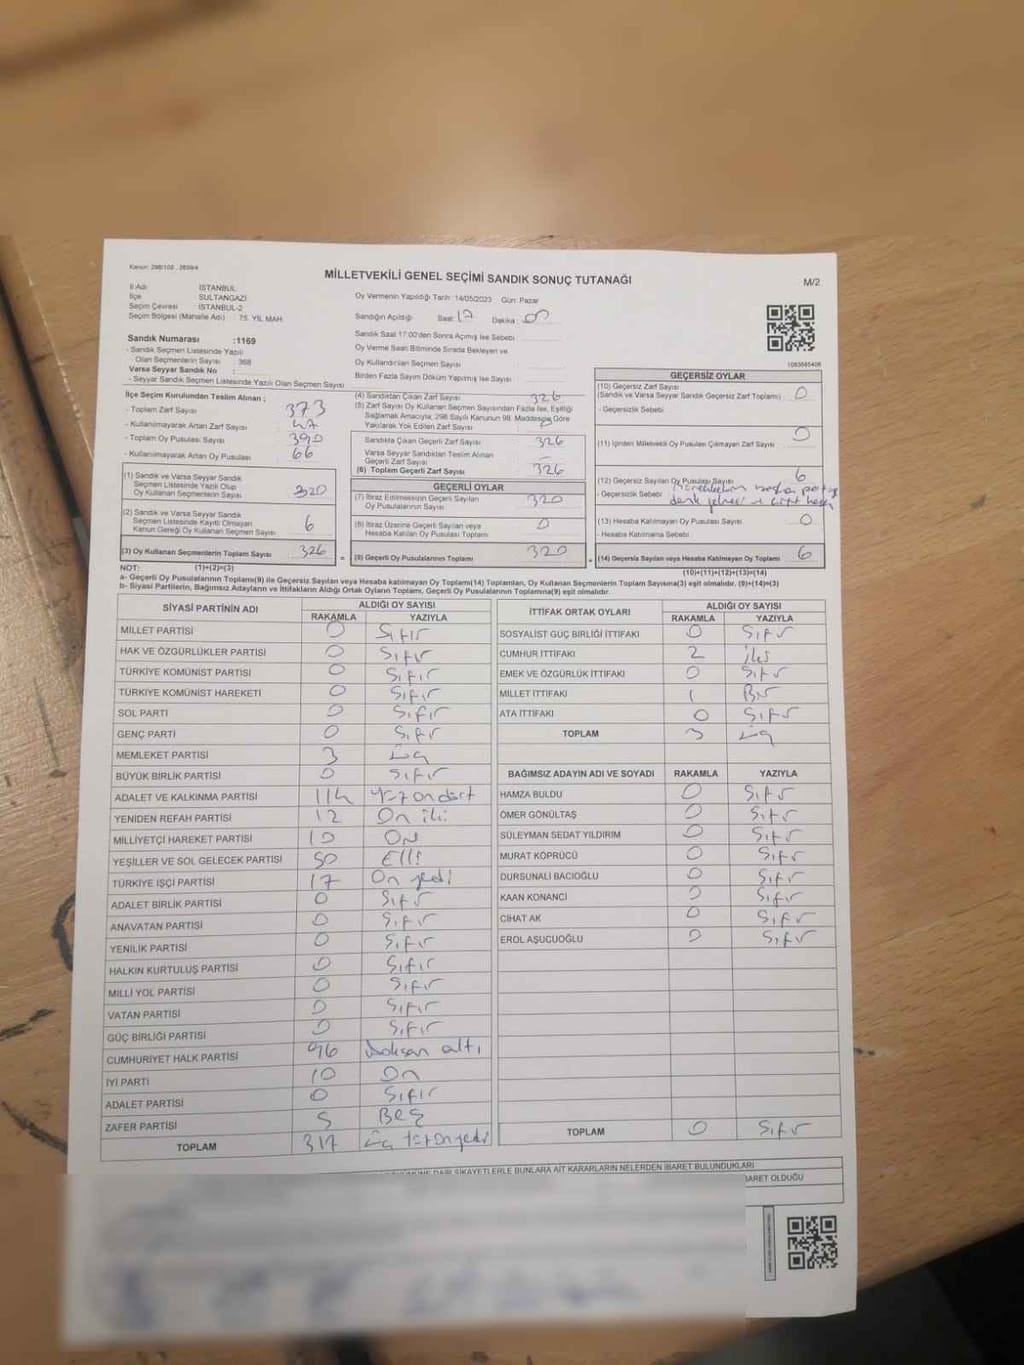 Kanun: 298/105 , 2839/4
MİLLETVEKİLİ GENEL SEÇİMİ SANDIK SONUÇ TUTANAĞI
M/2
İl Adı İSTANBUL
İlçe SULTANGAZİ
Seçim Çevresi İSTANBUL-2
Seçim Bölgesi (Mahalle Adı) : 75. YIL MAH.
Oy Vermenin Yapıldığı Tarih :14/05/2023 Gün: Pazar
Sandığın Açıldığı Saat 17 Dakika
Sandık Saat 17:00'den Sonra Açılmış İse Sebebi
Oy Verme Saati Bitiminde Sırada Bekleyen ve
Oy Kullandırılan Seçmen Sayısı
Birden Fazla Sayım Döküm Yapılmış İse Sayısı
Sandık Numarası :1169
- Sandık Seçmen Listesinde Yazılı
Olan Seçmenlerin Sayısı : 368
Varsa Seyyar Sandık No :
- Seyyar Sandık Seçmen Listesinde Yazılı Olan Seçmen Sayısı
İlçe Seçim Kurulundan Teslim Alınan ;
- Toplam Zarf Sayısı 373
- Kullanılmayarak Artan Zarf Sayısı 47
- Toplam Oy Pusulası Sayısı 390
- Kullanılmayarak Artan Oy Pusulası 66
(1) Sandık ve Varsa Seyyar Sandık
Seçmen Listesinde Yazılı Olup
Oy Kullanan Seçmenlerin Sayısı 320
(2) Sandık ve Varsa Seyyar Sandık
Seçmen Listesinde Kayıtlı Olmayan
Kanun Gereği Oy Kullanan Seçmen Sayısı 6
(3) Oy Kullanan Seçmenlerin Toplam Sayısı 326
(4) Sandıktan Çıkan Zarf Sayısı 326
(5) Zarf Sayısı Oy Kullanan Seçmen Sayısından Fazla İse, Eşitliği
Sağlamak Amacıyla; 298 Sayılı Kanunun 98. Maddesine Göre
Yakılarak Yok Edilen Zarf Sayısı
Sandıkta Çıkan Geçerli Zarf Sayısı 326
Varsa Seyyar Sandıktan Teslim Alınan
Geçerli Zarf Sayısı -
(6) Toplam Geçerli Zarf Sayısı 326
GEÇERLİ OYLAR
(7) İtiraz Edilmeksizin Geçerli Sayılan
Oy Pusulaları Toplamı 320
(8) İtiraz Üzerine Geçerli Sayılan veya
Hesaba Katılan Oy Pusulası Toplamı 0
= (9) Geçerli Oy Pusulalarının Toplamı 320
1083645406
GEÇERSİZ OYLAR
(10) Geçersiz Zarf Sayısı
(Sandık ve Varsa Seyyar Sandık Geçersiz Zarf Toplamı) 0
- Geçersizlik Sebebi
(11) İçinden Milletvekili Oy Pusulası Çıkmayan Zarf Sayısı 0
(12) Geçersiz Sayılan Oy Pusulası Sayısı 6
- Geçersizlik Sebebi
(13) Hesaba Katılmayan Oy Pusulası Sayısı 0
- Hesaba Katılmama Sebebi
+ (14) Geçersiz Sayılan veya Hesaba Katılmayan Oy Toplamı 6
NOT: (1)+(2)=(3)
(10)+(11)+(12)+(13)=(14)
a- Geçerli Oy Pusulalarının Toplamı(9) ile Geçersiz Sayılan veya Hesaba katılmayan Oy Toplamı(14) Toplamları, Oy Kullanan Seçmenlerin Toplam Sayısına(3) eşit olmalıdır. (9)+(14)=(3)
b- Siyasi Partilerin, Bağımsız Adayların ve İttifakların Aldığı Ortak Oyların Toplamı, Geçerli Oy Pusulalarının Toplamına(9) eşit olmalıdır.
SİYASİ PARTİNİN ADI ALDIĞI OY SAYISI
RAKAMLA YAZIYLA
MİLLET PARTİSİ 0 Sıfır
HAK VE ÖZGÜRLÜKLER PARTİSİ 0 Sıfır
TÜRKİYE KOMÜNİST PARTİSİ 0 Sıfır
TÜRKİYE KOMÜNİST HAREKETİ 0 Sıfır
SOL PARTİ 0 Sıfır
GENÇ PARTİ 0 Sıfır
MEMLEKET PARTİSİ 3 Üç
BÜYÜK BİRLİK PARTİSİ 0 Sıfır
ADALET VE KALKINMA PARTİSİ 114 Yüz on dört
YENİDEN REFAH PARTİSİ 12 On iki
MİLLİYETÇİ HAREKET PARTİSİ 10 On
YEŞİLLER VE SOL GELECEK PARTİSİ 50 Elli
TÜRKİYE İŞÇİ PARTİSİ 17 On yedi
ADALET BİRLİK PARTİSİ 0 Sıfır
ANAVATAN PARTİSİ 0 Sıfır
YENİLİK PARTİSİ 0 Sıfır
HALKIN KURTULUŞ PARTİSİ 0 Sıfır
MİLLİ YOL PARTİSİ 0 Sıfır
VATAN PARTİSİ 0 Sıfır
GÜÇ BİRLİĞİ PARTİSİ 0 Sıfır
CUMHURİYET HALK PARTİSİ 96 Doksan altı
İYİ PARTİ 10 On
ADALET PARTİSİ 0 Sıfır
ZAFER PARTİSİ 5 Beş
TOPLAM 317 Üç yüz on yedi
İTTİFAK ORTAK OYLARI ALDIĞI OY SAYISI
RAKAMLA YAZIYLA
SOSYALİST GÜÇ BİRLİĞİ İTTİFAKI 0 Sıfır
CUMHUR İTTİFAKI 2 İki
EMEK VE ÖZGÜRLÜK İTTİFAKI 0 Sıfır
MİLLET İTTİFAKI 1 Bir
ATA İTTİFAKI 0 Sıfır
TOPLAM 3 Üç
BAĞIMSIZ ADAYIN ADI VE SOYADI RAKAMLA YAZIYLA
HAMZA BULDU 0 Sıfır
ÖMER GÖNÜLTAŞ 0 Sıfır
SÜLEYMAN SEDAT YILDIRIM 0 Sıfır
MURAT KÖPRÜCÜ 0 Sıfır
DURSUNALİ BACIOĞLU 0 Sıfır
KAAN KONANCİ 0 Sıfır
CİHAT AK 0 Sıfır
EROL AŞUCUOĞLU 0 Sıfır
TOPLAM 0 Sıfır
DAİR ŞİKAYETLERLE BUNLARA AİT KARARLARIN NELERDEN İBARET BULUNDUKLARI
İBARET OLDUĞU